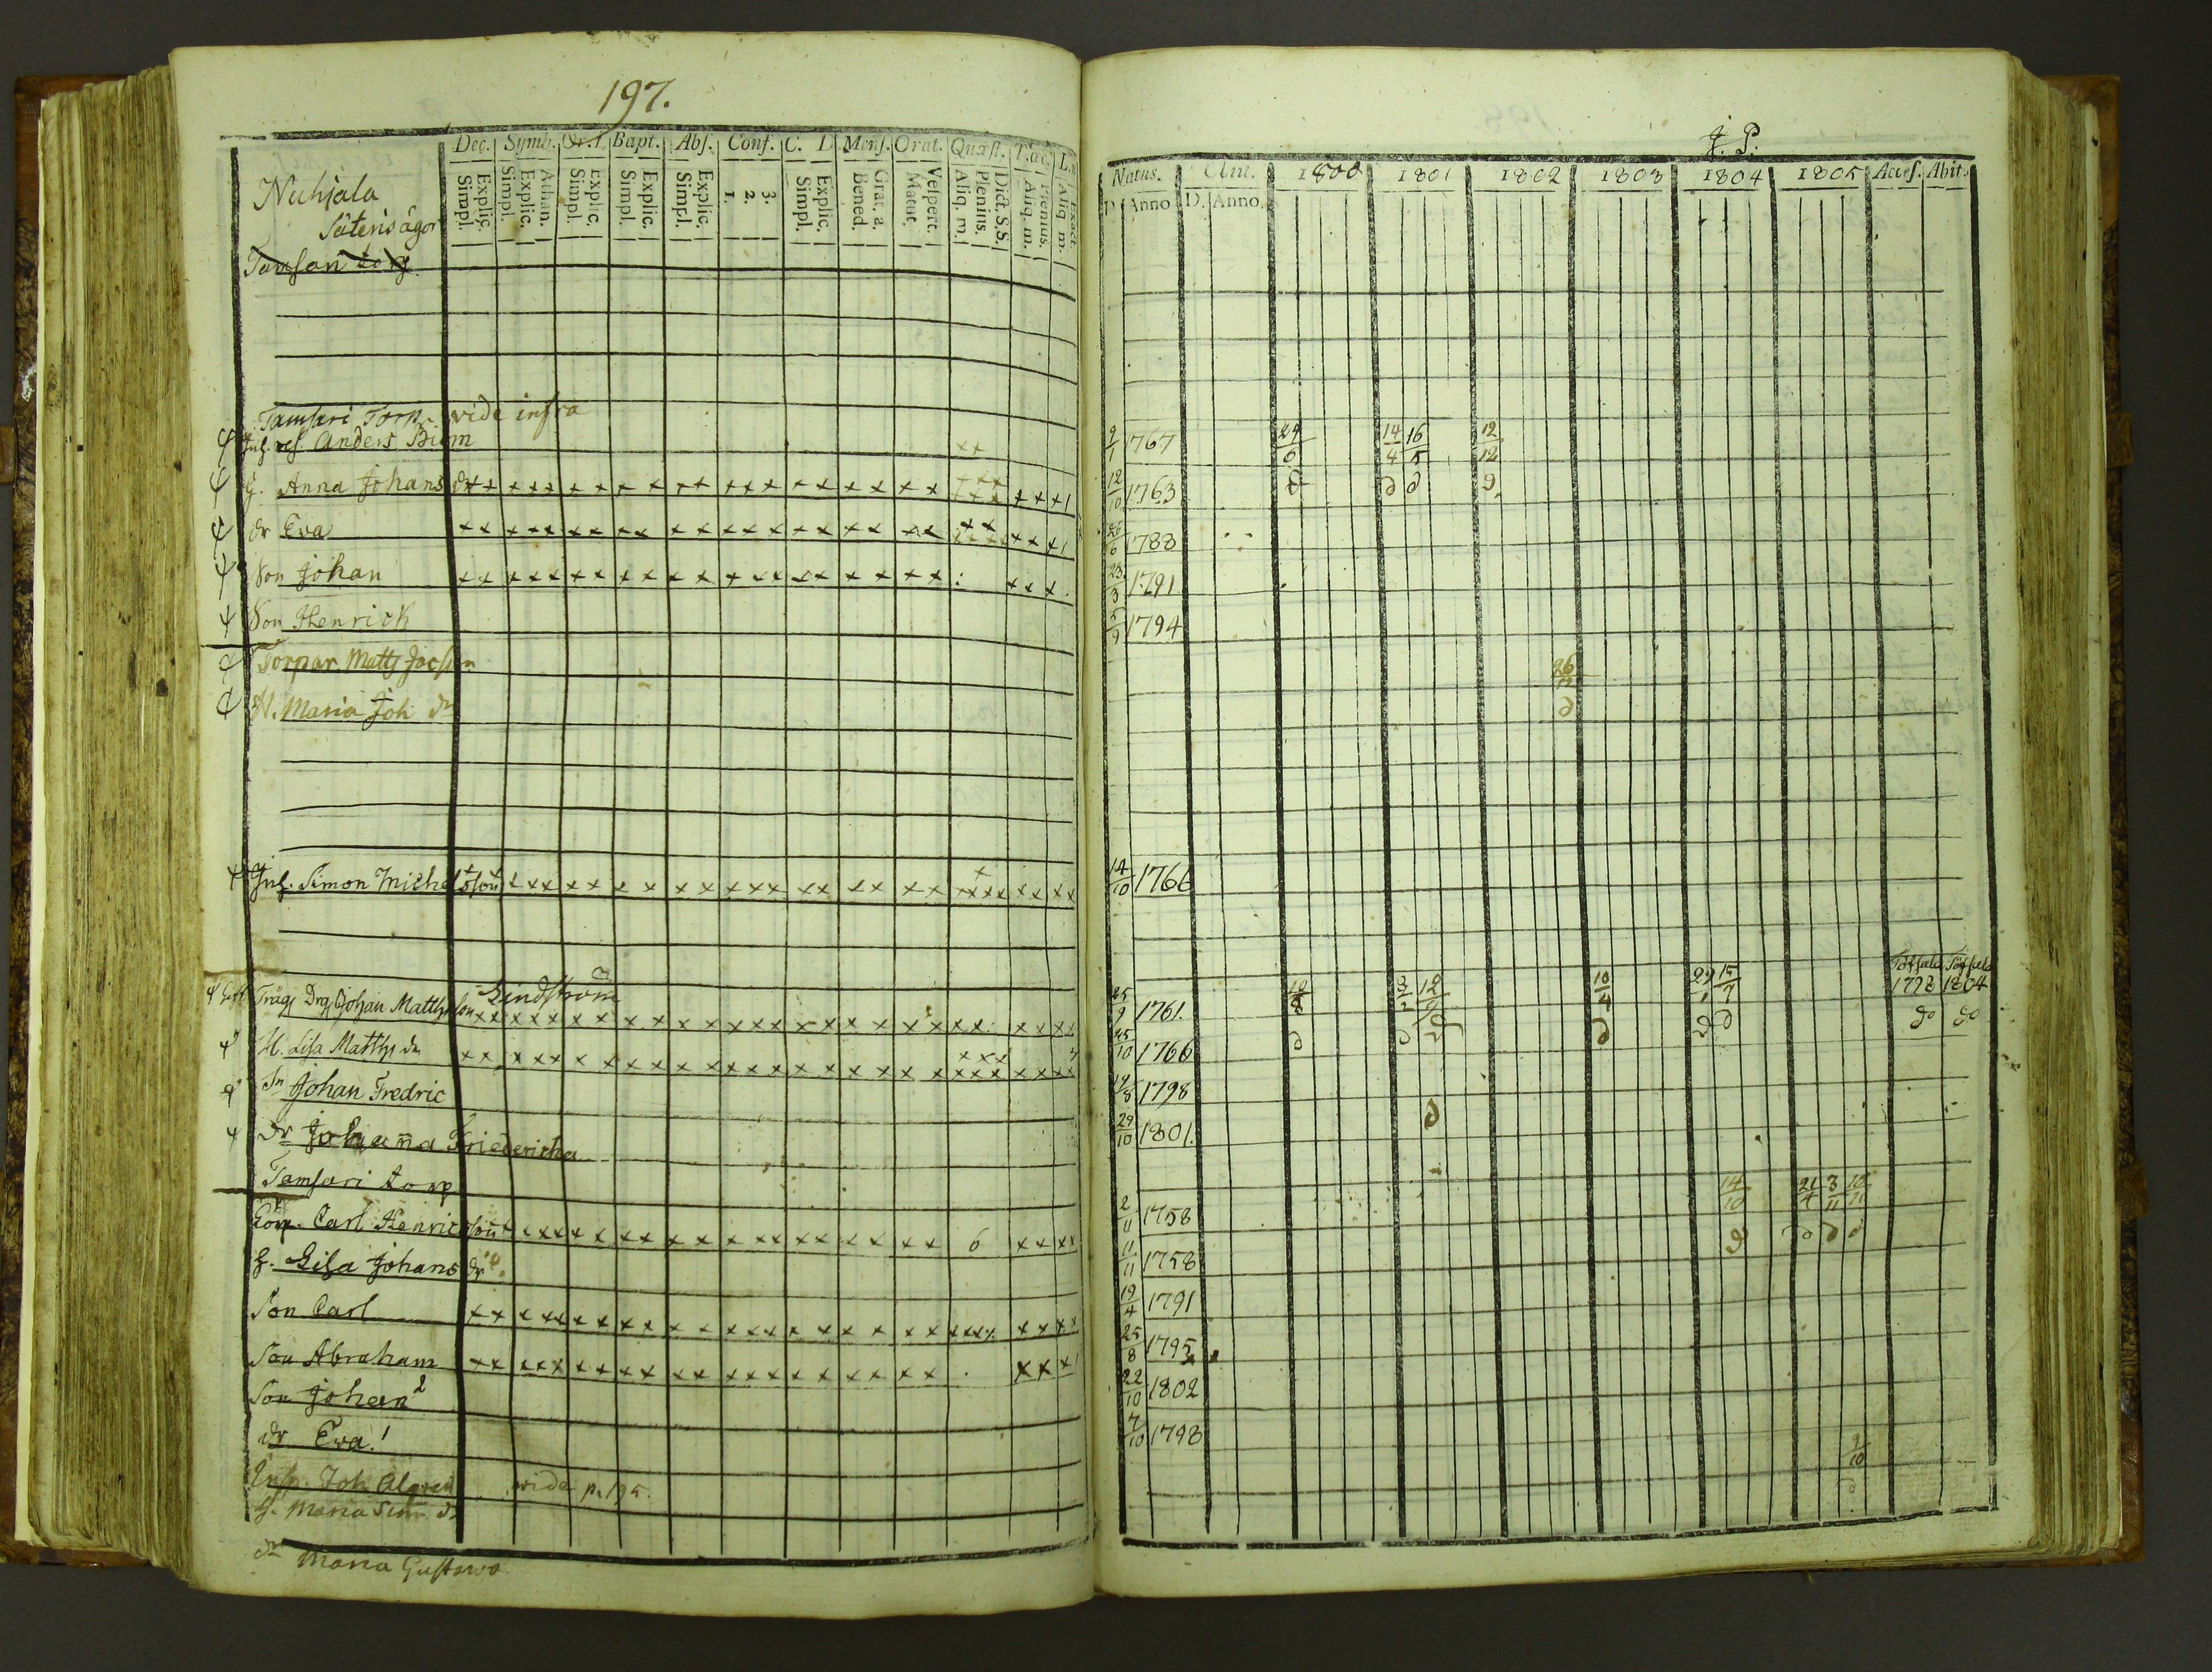 197.
Dec. Symb. Or. Bapt. Abs. Conf. C. D Mens. Orat. Quæst. T. œc. L.
Explic. Simpl. Athan. Explic. Simpl. Explic. Simpl. Explic. Simpl. Explic. Simpl. 3. 2. 1. Explic. Simpl. Grat. a. Bened. Vespert. Matut. Dict. S.S. Plenius. Aliq. m. Plenius. Aliq. m. Exact. Aliq. m.
Nuhjala
Säteris ägor
Tamsari torp
Tamsari Torp. vide infra
Inh. Anders Biom
H. Anna Johans dr
dr Eva
Son Johan
Son Henrick
Torpar Matts Jacson
H. Maria Joh dr
Inh. Simon Michelsson
Träg Drg Johan Matths son Lindström
H. Lisa Matths dr
Sn Johan Fredric
dr Johanna Friedericha
Tamsari torp
Carl Henricsson 6
H. Lisa Johans dr
Son Carl
Son Abraham
Son Johan 2
dr Eva. 1
Insp. Joh Algren vide p. 195.
H. Maria Sim dr
dr Maria Gustava
J. P.
Natus. 1800 1801 1802 1803 1804 1805 Access. Abit.
D. Anno D. Anno.
9/1 1767 29/6 14/4 16/5 12/12
12/10 1763 d d d d
26/6 1788
23/3 1791
5/9 1794
26
d
14/10 1766
25/9 1761. 3/2 12/9 10/4 29/1 15/7 Töfsala 1778 Töfsala 1804
25/10 1766 d d d d d d do do
19/8 1798
29/10 1801. d
2/11 1758 14/10 21/4 3/11
11/11 1758 d d d d
19/4 1791
25/8 1795
22/10 1802
7/10 1798